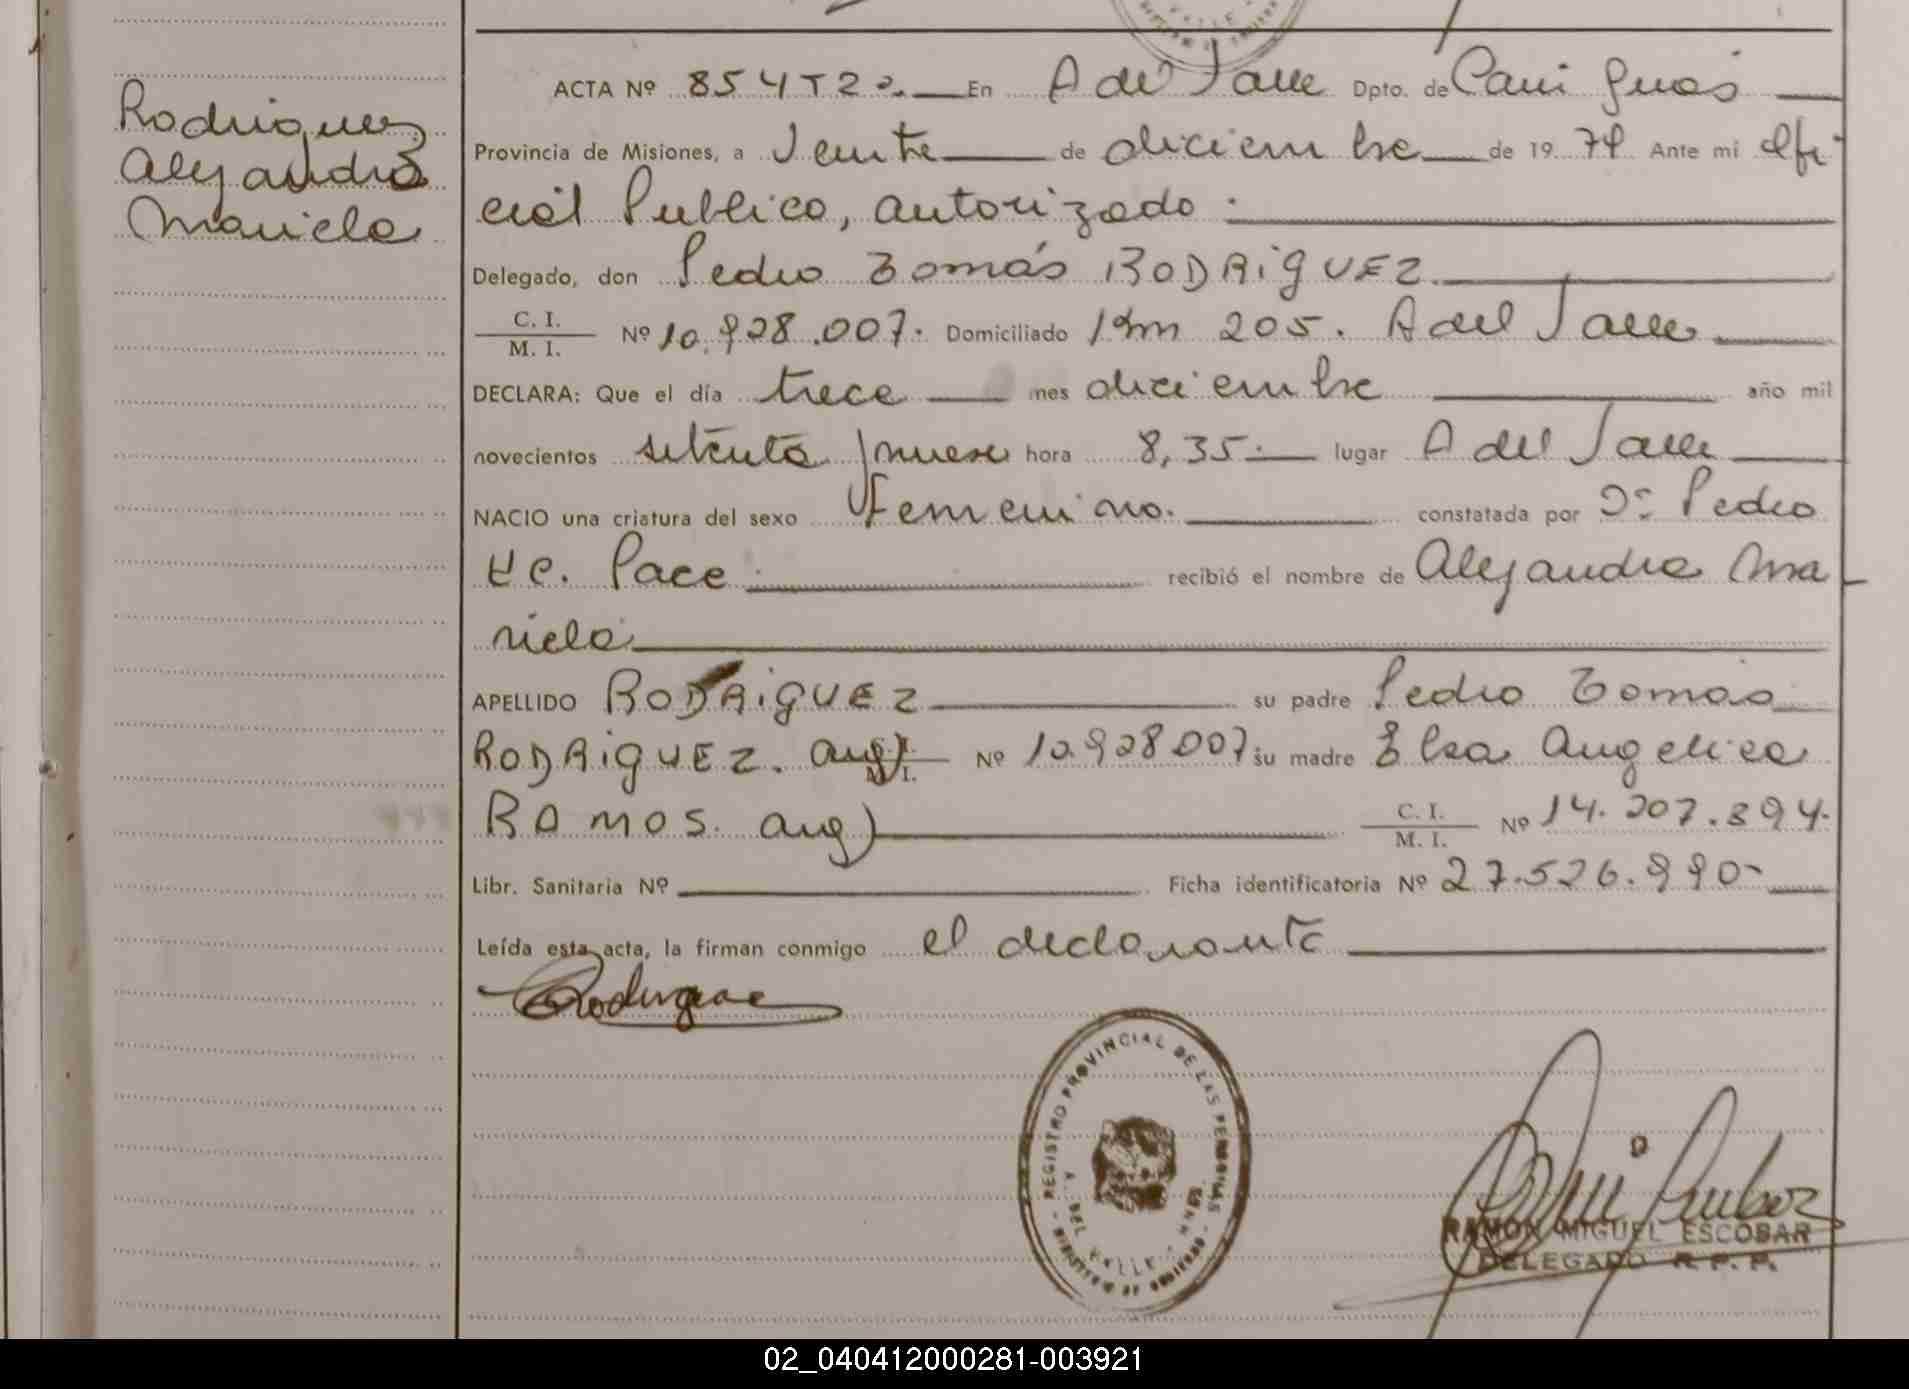 Rodriguez
Alejandra
Mariela
ACTA Nº 854T2º. En A del Valle Dpto. de Cain Guás
Provincia de Misiones, a Veinte de diciembre de 1979 Ante mi Ofi-
cial Publico, autorizado.
Delegado, don Pedro Tomás RODRIGUEZ
C. I.
M. I. Nº 10.928.007. Domiciliado Km 205. A del Valle
DECLARA: Que el día trece mes diciembre año mil
novecientos setenta y nueve hora 8,35. lugar A del Valle
NACIO una criatura del sexo Femenino. constatada por Dr Pedro
Pace recibió el nombre de Alejandra Ma-
riela
APELLIDO RODRIGUEZ su padre Pedro Tomás
RODRIGUEZ. arg) Nº 10.928.007 su madre Elsa Angelica
RAMOS. arg) C. I.
M. I. Nº 14.207.394.
Libr. Sanitaria Nº Ficha identificatoria Nº 27.526.990-
Leída esta acta, la firman conmigo el declarante
Rodriguez
REGISTRO PROVINCIAL DE LAS PERSONAS
A. DEL VALLE
RAMON MIGUEL ESCOBAR
DELEGADO R. P. P.
02_040412000281-003921